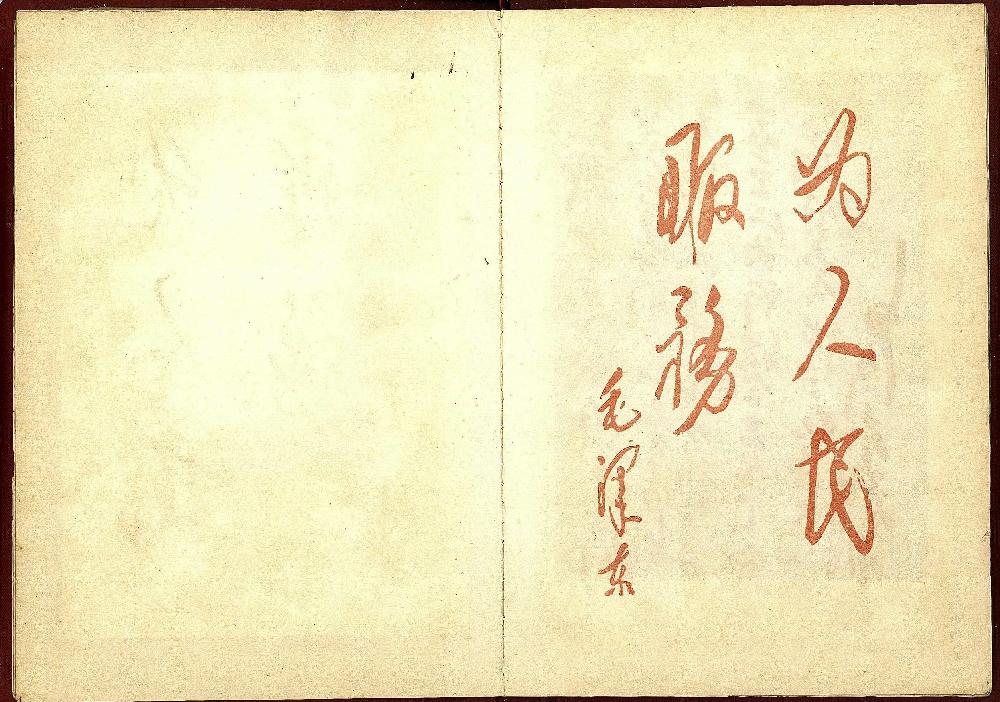 为人民
服務
毛泽东